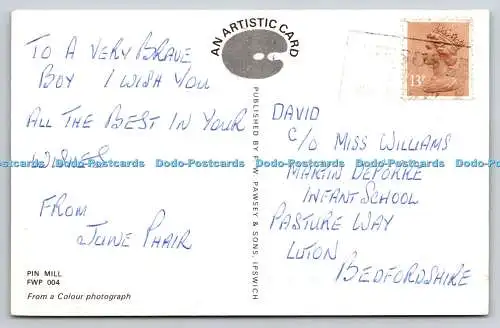 TO A VERY BRAVE
BOY I WISH YOU
ALL THE BEST IN YOUR
WISHES
FROM
JUNE PHAIR
PIN MILL
FWP 004
From a Colour photograph
AN ARTISTIC CARD
PUBLISHED BY F. W. PAWSEY & SONS, IPSWICH
13P
DAVID
C/O MISS WILLIAMS
MARTIN DEPORRE
INFANT SCHOOL
PASTURE WAY
LUTON
BEDFORDSHIRE
Dodo-Postcards Dodo-Postcards Dodo-Postcards Dodo-Postcards Dodo-Postcards